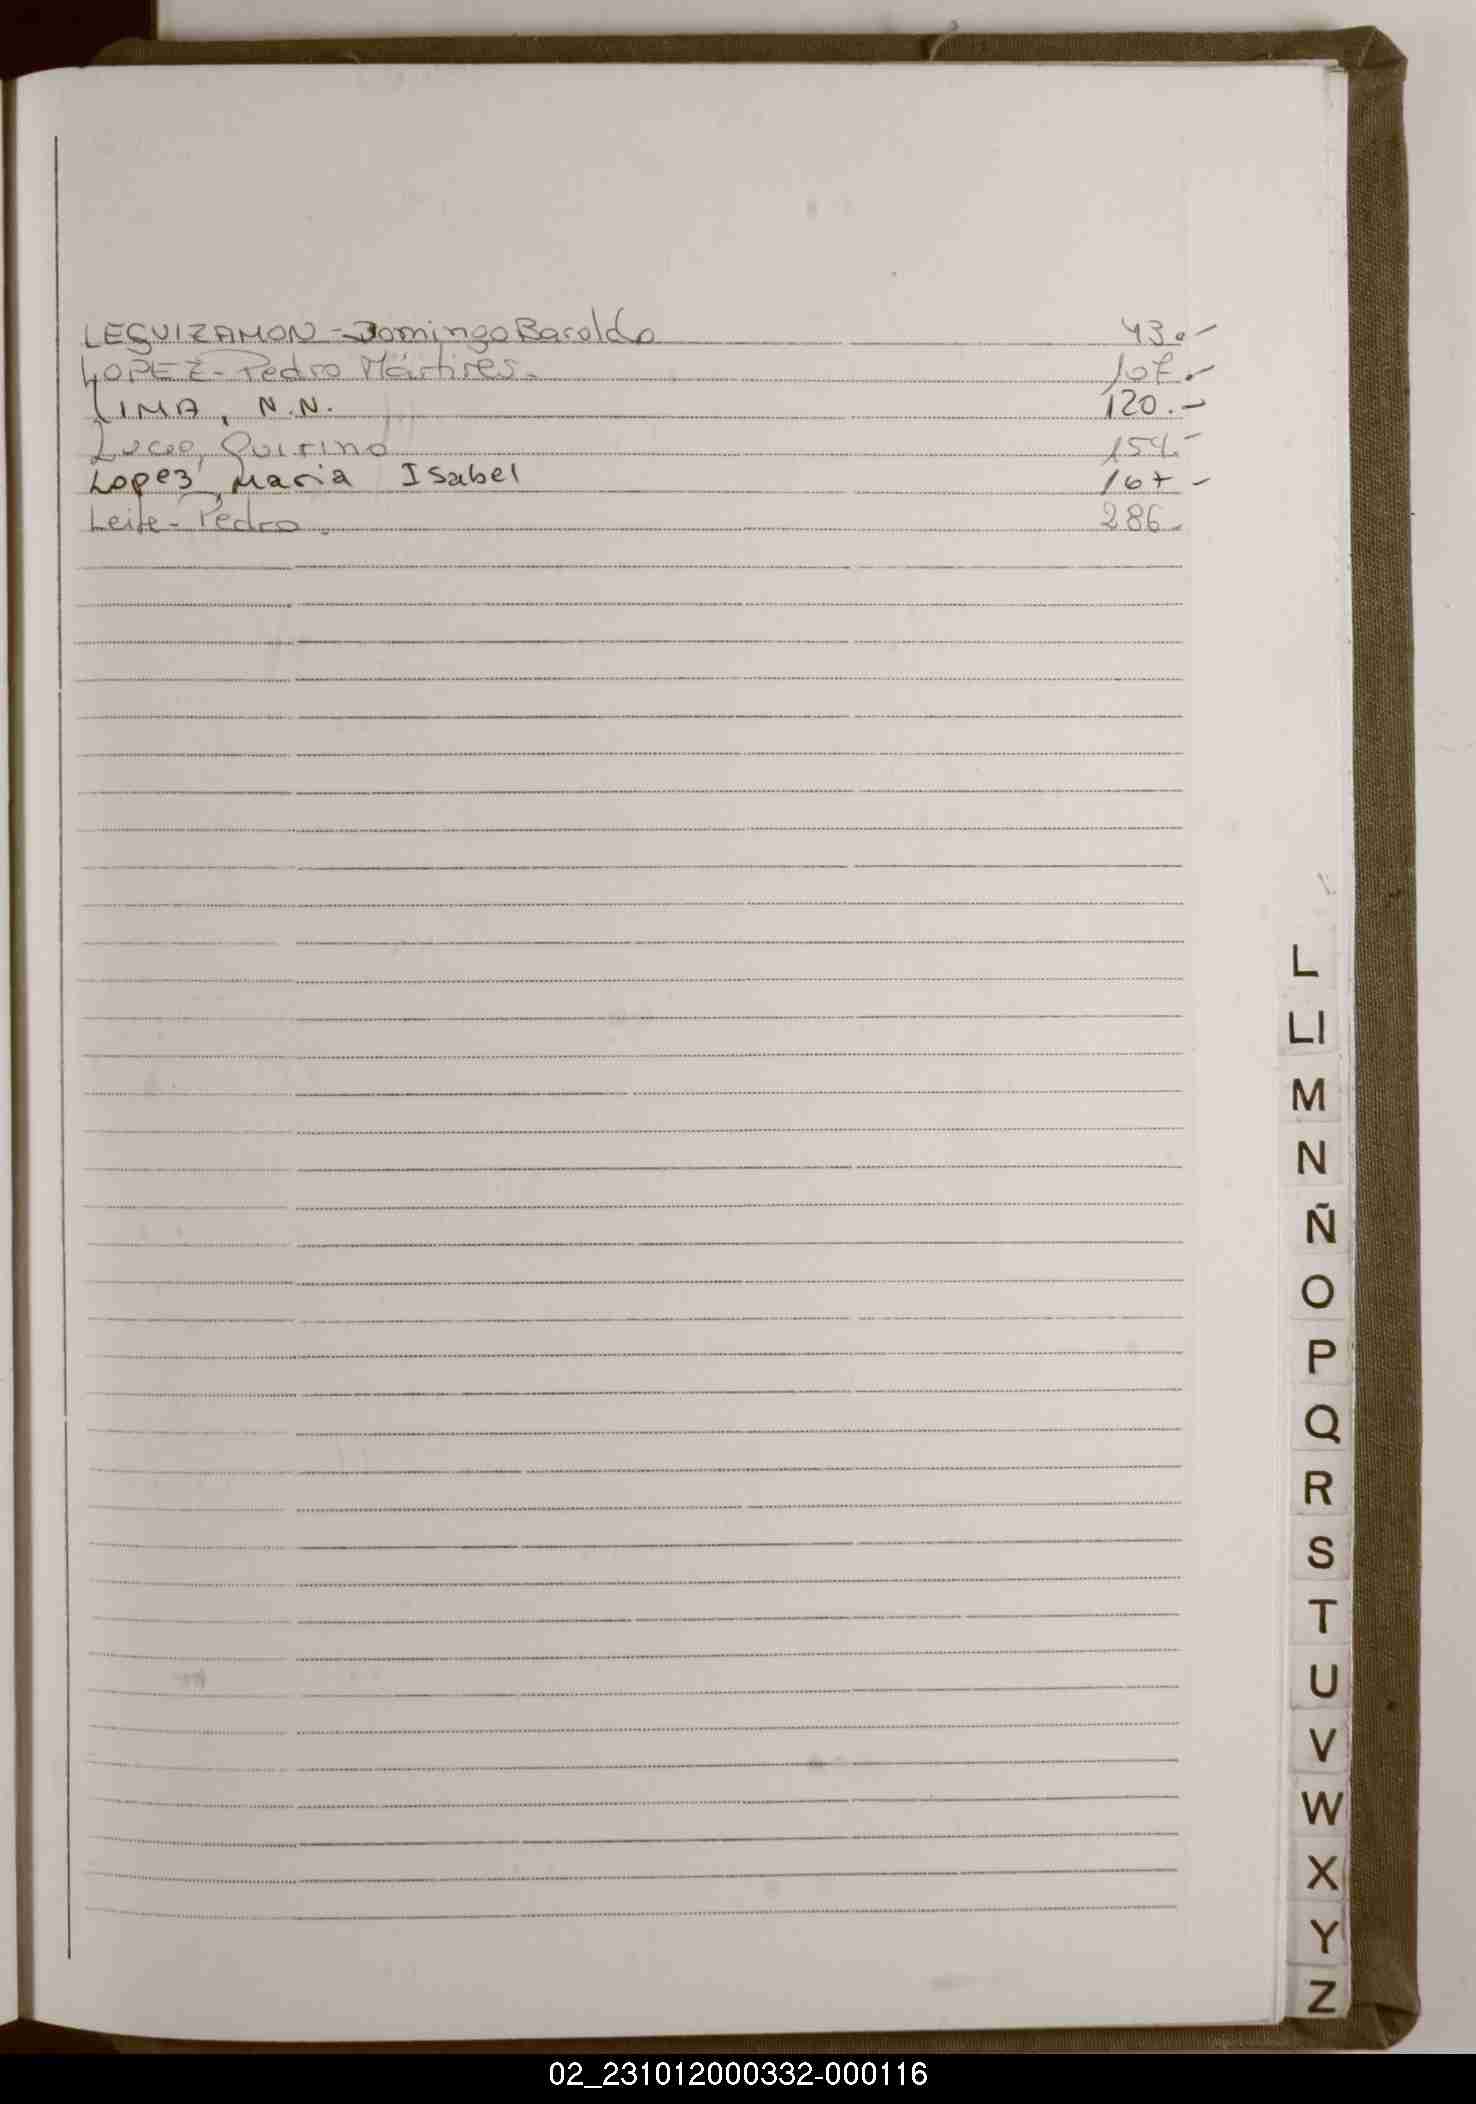 LEGUIZAMON - Domingo Baroldo 43.-
LOPEZ - Pedro Mártires. 107.-
LIMA, N.N. 120.-
Quirino 154.-
Lopez, Maria Isabel 167 -
Leite - Pedro. 286.
L
Ll
M
N
Ñ
O
P
Q
R
S
T
U
V
W
X
Y
Z
02_231012000332-000116